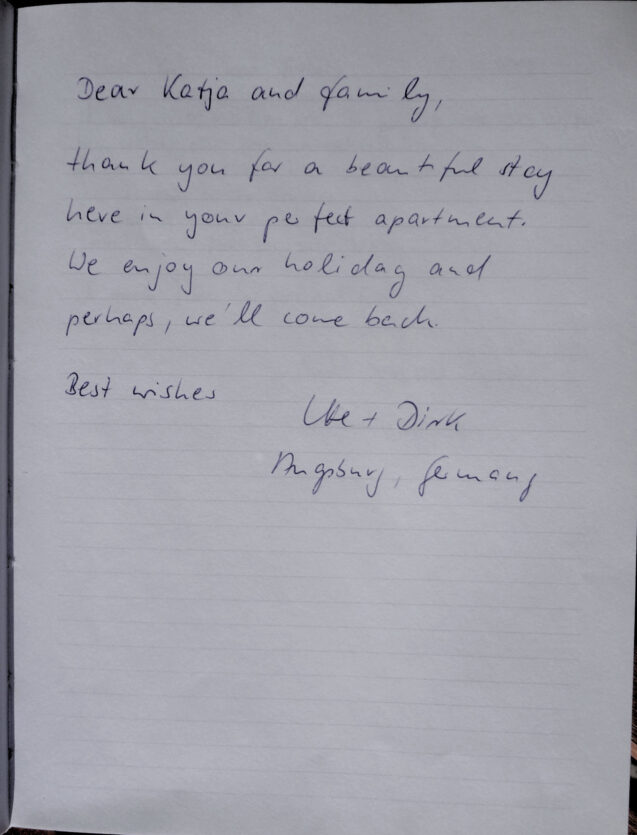 Dear Katja and family,
thank you for a beautiful stay
here in your perfect apartment.
We enjoy our holiday and
perhaps, we'll come back.
Best wishes
Ute + Dirk
Augsburg, Germany